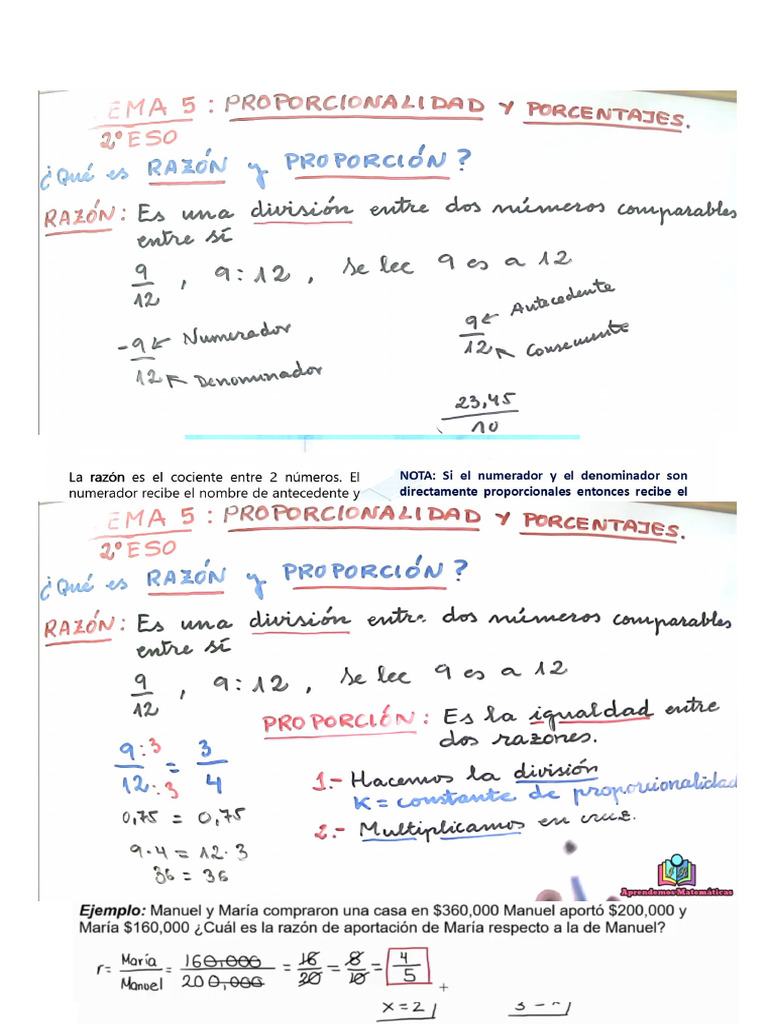 EMA 5 : PROPORCIONALIDAD Y PORCENTAJES.
2º ESO
¿Qué es RAZÓN y PROPORCIÓN?
RAZÓN: Es una división entre dos números comparables
entre sí
9/12 , 9:12 , se lee 9 es a 12
9 Numerador
12 Denominador
9 Antecedente
12 Consecuente
23,45
10
La razón es el cociente entre 2 números. El
numerador recibe el nombre de antecedente y
NOTA: Si el numerador y el denominador son
directamente proporcionales entonces recibe el
EMA 5 : PROPORCIONALIDAD Y PORCENTAJES.
2º ESO
¿Qué es RAZÓN y PROPORCIÓN?
RAZÓN: Es una división entre dos números comparables
entre sí
9/12 , 9:12 , se lee 9 es a 12
PROPORCIÓN: Es la igualdad entre
dos razones.
9:3/12:3 = 3/4
1.- Hacemos la división
K = constante de proporcionalidad
0,75 = 0,75
2.- Multiplicamos en cruz.
9·4 = 12·3
36 = 36
Aprendemos Matemáticas
Ejemplo: Manuel y María compraron una casa en $360,000 Manuel aportó $200,000 y
María $160,000 ¿Cuál es la razón de aportación de María respecto a la de Manuel?
r = María/Manuel = 160,000/200,000 = 16/20 = 8/10 = 4/5
x = 2